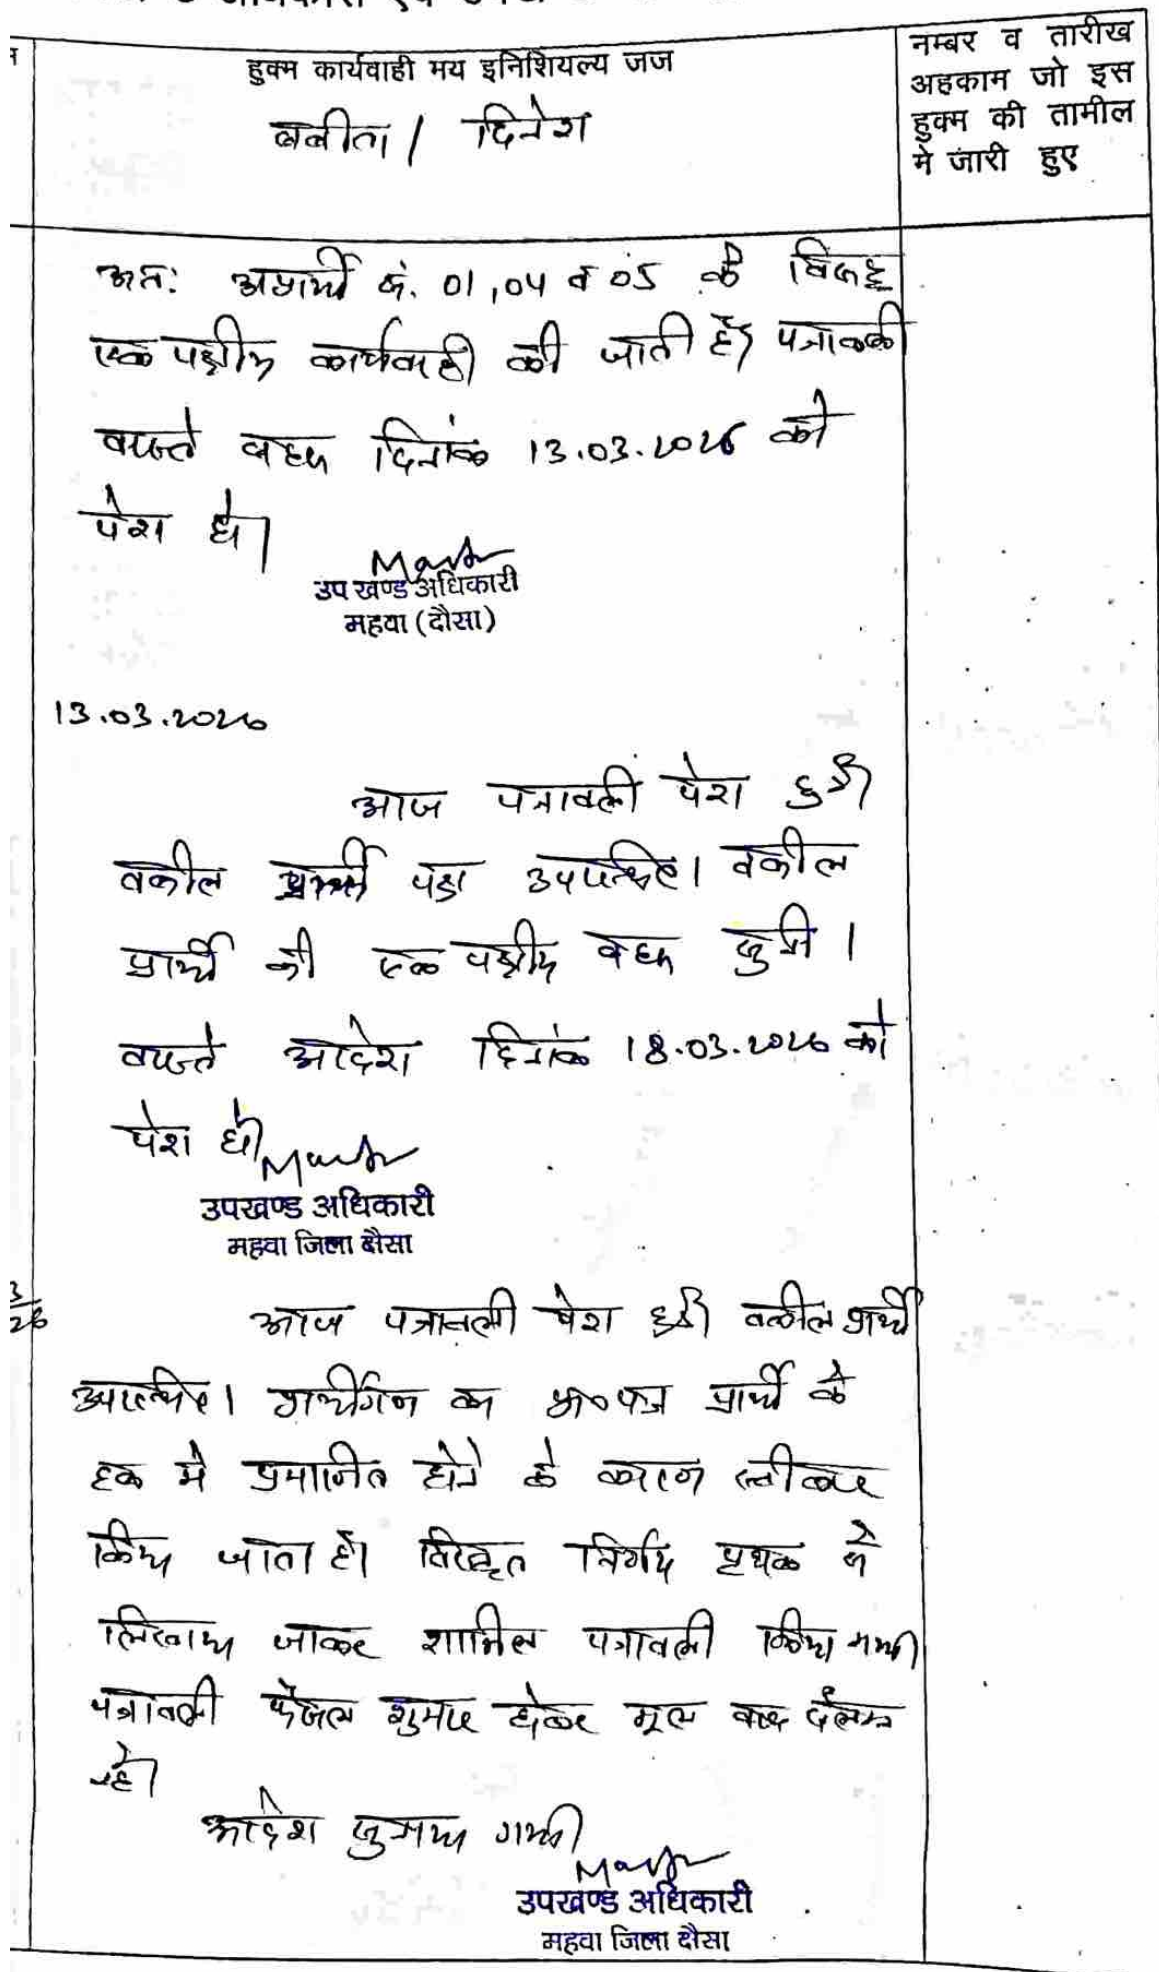 हुक्म कार्यवाही मय इनिशियल्य जज
नम्बर व तारीख
अहकाम जो इस
हुक्म की तामील
मे जारी हुए
बबीता / दिनेश
अतः अप्रार्थी सं. 01,04 व 05 के विरूद्ध
एक पक्षीय कार्यवाही की जाती है। पत्रावली
वास्ते बहस दिनांक 13.03.2026 को
पेश हो।
उप खण्ड अधिकारी
महवा (दौसा)
13.03.2026
आज पत्रावली पेश हुई।
वकील प्रार्थी पक्ष उपस्थित। वकील
प्रार्थी की एक पक्षीय बहस सुनी।
वास्ते आदेश दिनांक 18.03.2026 को
पेश हो।
उपखण्ड अधिकारी
महवा जिला दौसा
3/26
आज पत्रावली पेश हुई। वकील प्रार्थी
उपस्थित। प्रार्थीगण का प्रा० पत्र प्रार्थी के
हक मे प्रमाणित होने के कारण स्वीकार
किया जाता है। विस्तृत निर्णय पृथक से
लिखाया जाकर शामिल पत्रावली किया गया।
पत्रावली फैसल शुमार होकर मूल वाद संलग्न
रहे।
आदेश सुनाया गया।
उपखण्ड अधिकारी
महवा जिला दौसा